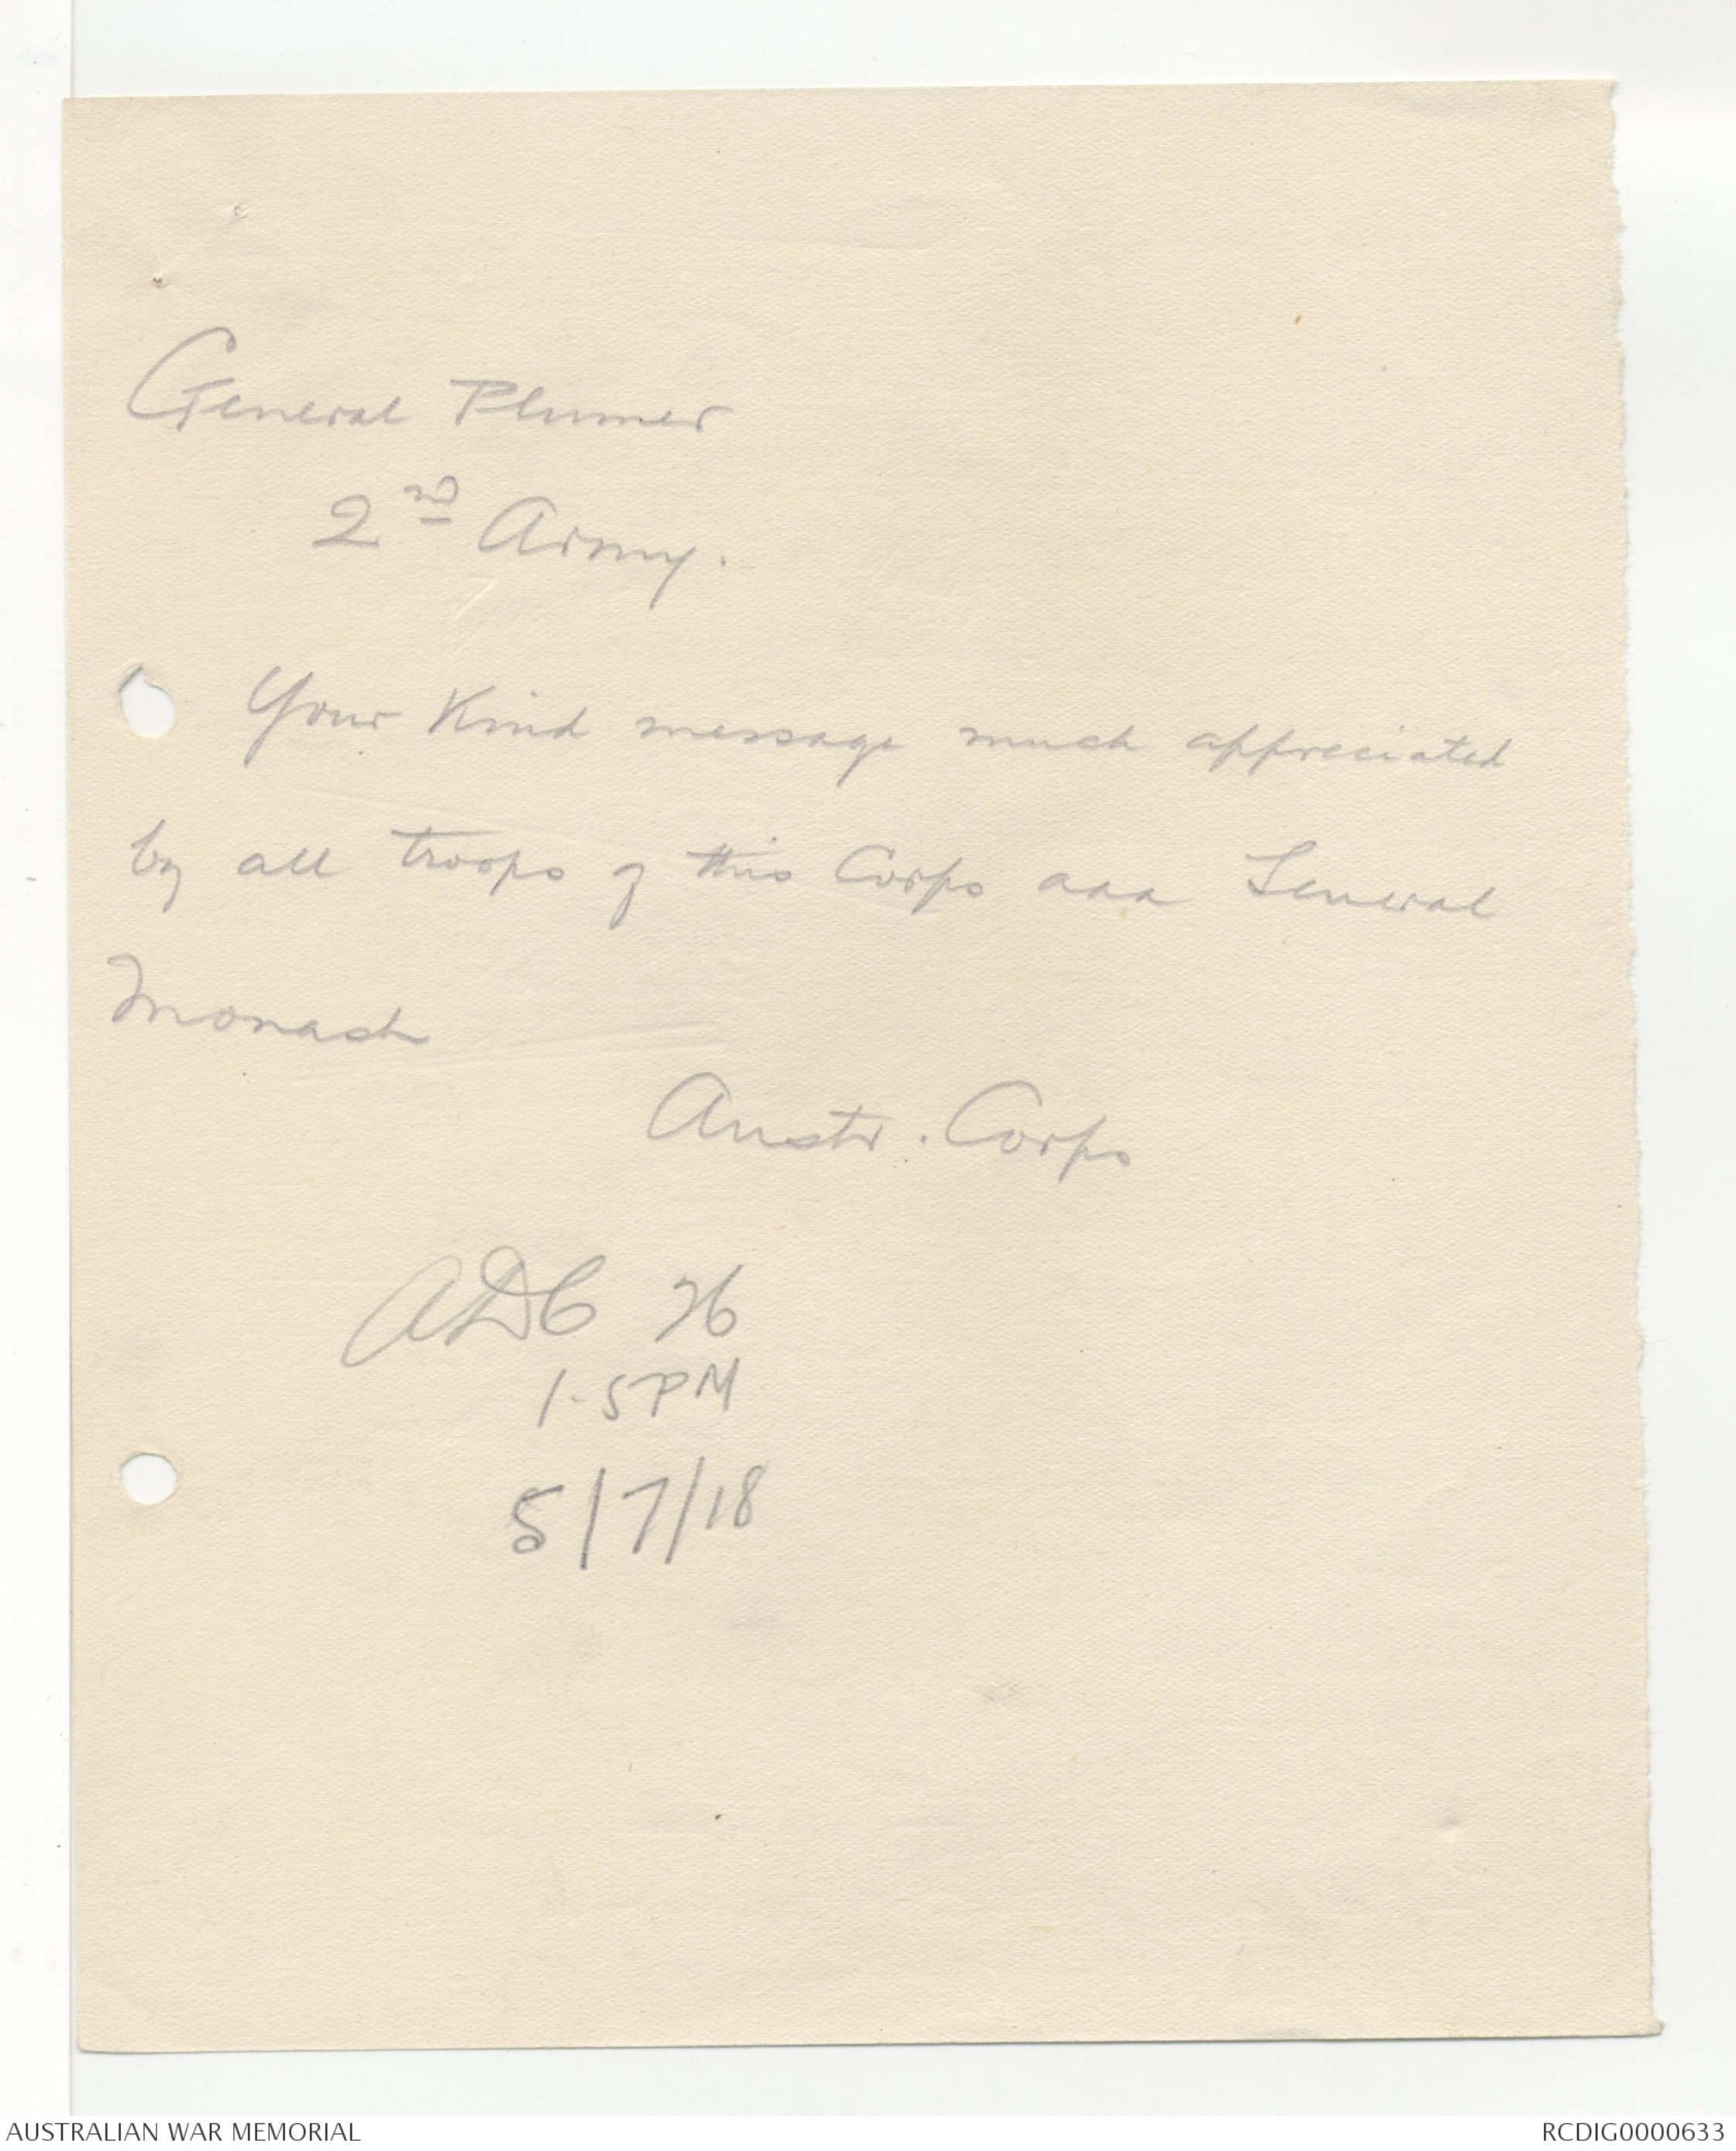 General Plumer
2nd Army.
Your Kind message much appreciated
by all troops of this Corps aaa General
Monash
Austr. Corps
ADC 76
1.5PM
5/7/18
AUSTRALIAN WAR MEMORIAL
RCDIG0000633